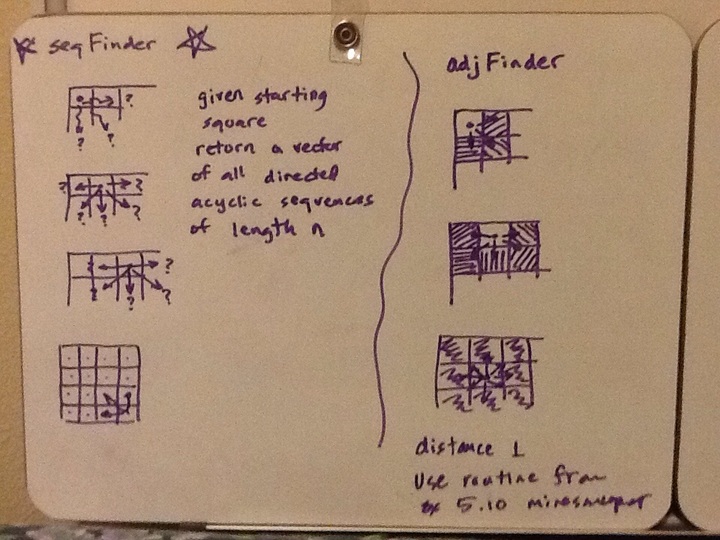 seqFinder
given starting
square
return a vector
of all directed
acyclic sequences
of length n
? ? ?
? ? ? ? ?
? ? ? ?
adjFinder
distance 1
Use routine from
ex 5.10 minesweeper